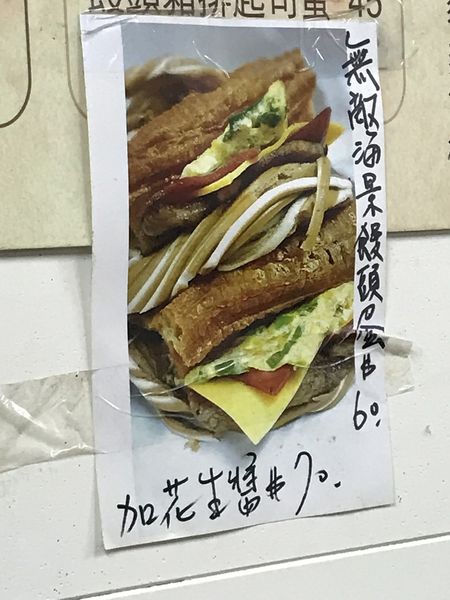 饅頭豬排起司蛋 45
無敵海景饅頭蛋$60.
加花生醬$70.